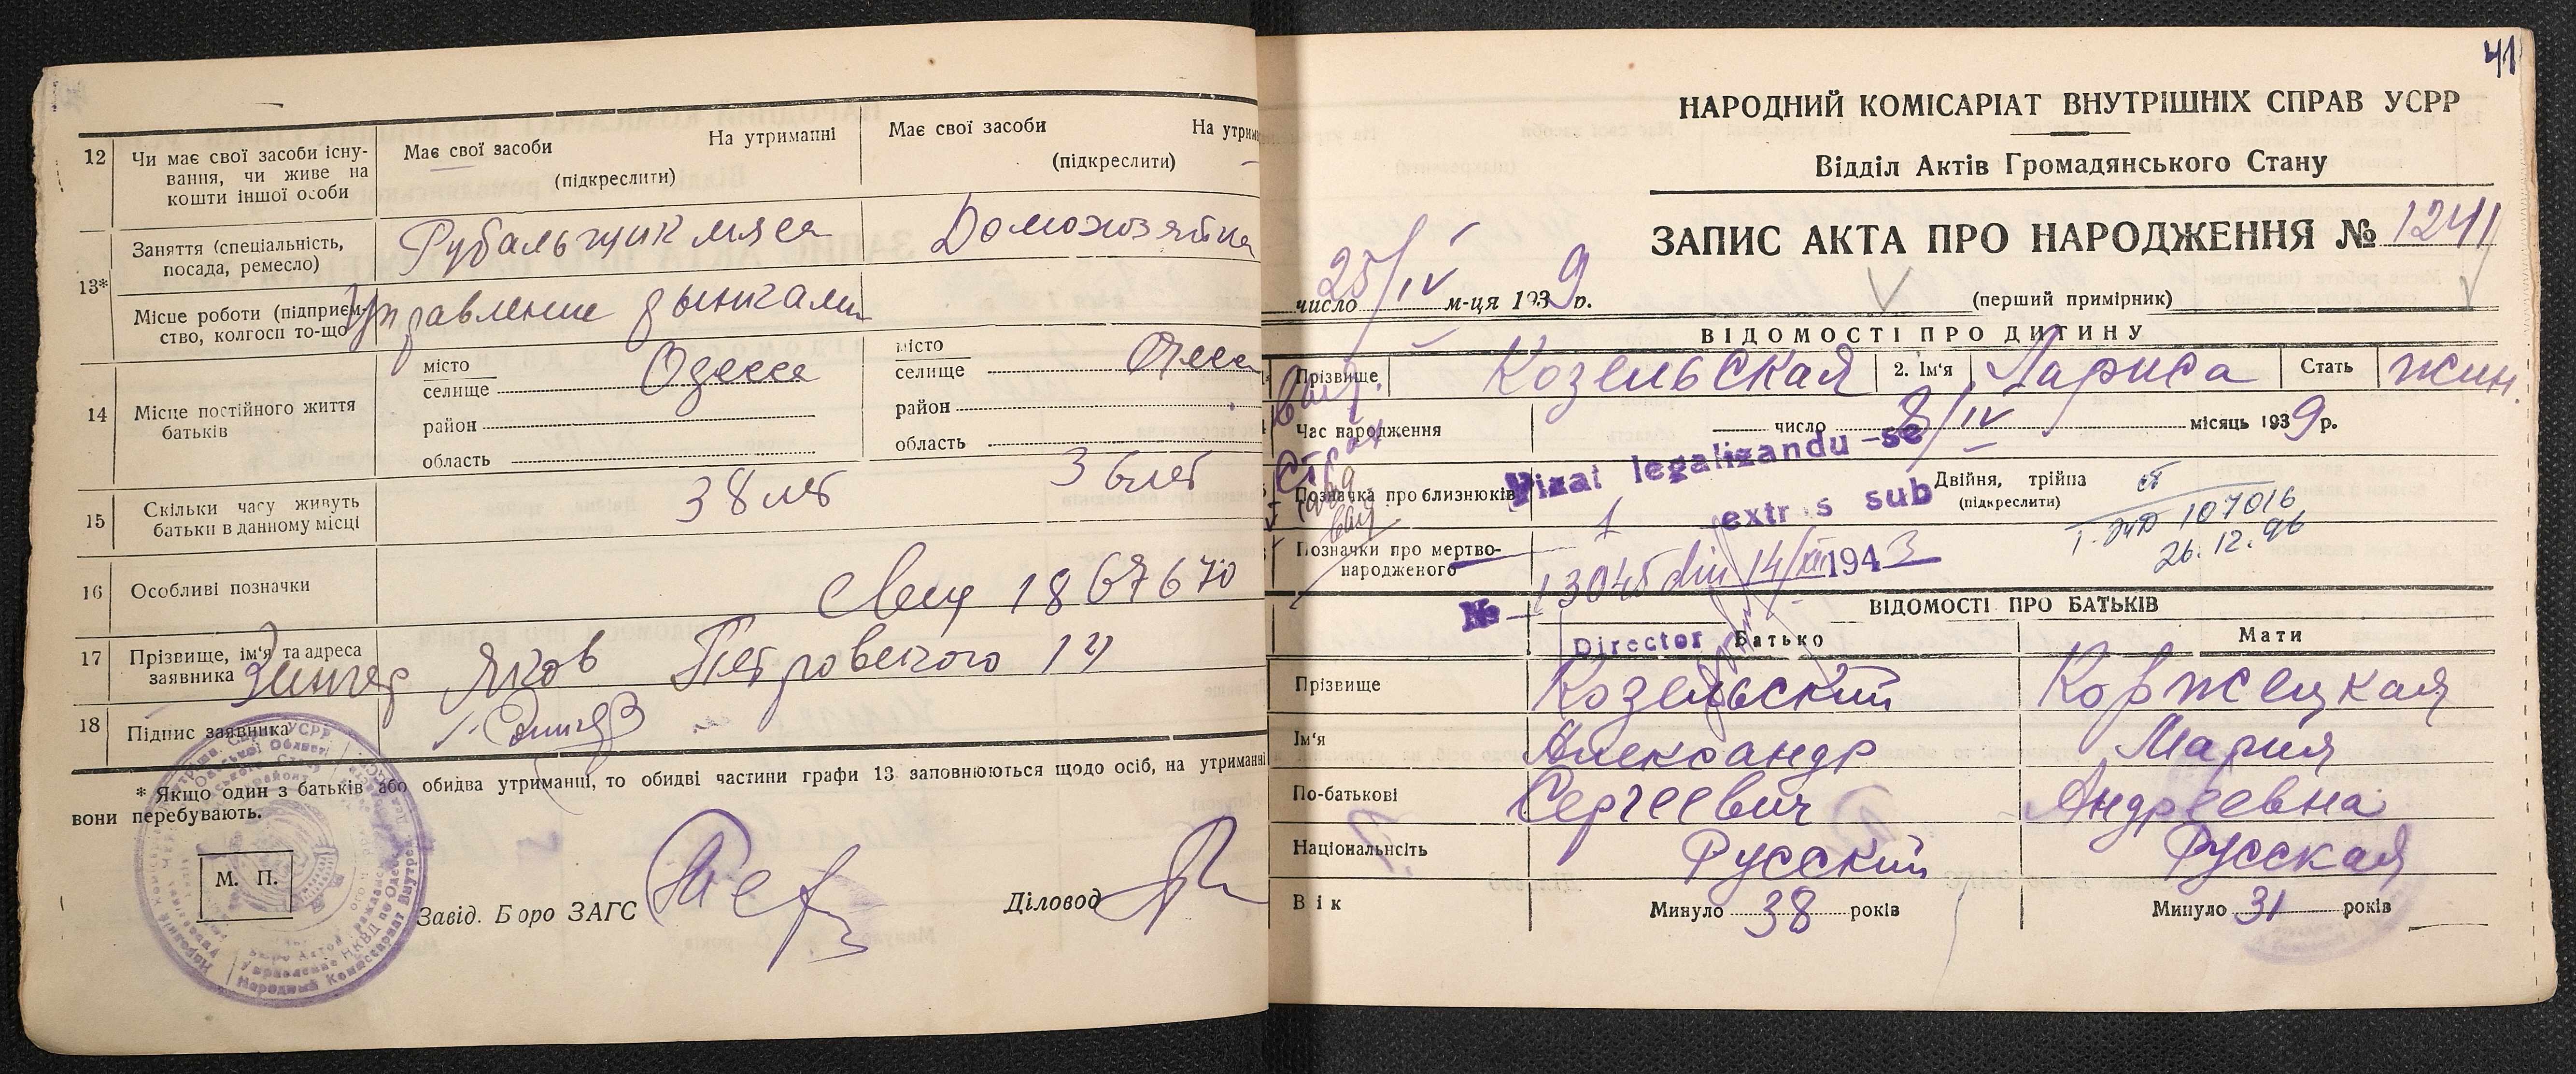 12
Чи має свої засоби існу-
вання, чи живе на
кошти іншої особи
Має свої засоби
На утриманні
(підкреслити)
Має свої засоби
На утрим
(підкреслити)
13*
Заняття (спеціальність,
посада, ремесло)
Рубальщик мяса
Домохозяйка
Місце роботи (підприєм-
ство, колгосп то-що)
Управление рынками
14
Місце постійного життя
батьків
місто
селище Одесса
район
область
місто
селище Одесса
район
область
15
Скільки часу живуть
батьки в данному місці
38 лет
36 лет
16
Особливі позначки
1867670
17
Прізвище, ім'я та адреса
заявника
Зингер Яков Петровского 14
18
Підпис заявника
* Якщо один з батьків або обидва утриманні, то обидві частини графи 13 заповнюються щодо осіб, на утриманні
вони перебувають.
М. П.
Завід. Бюро ЗАГС
Діловод
41
НАРОДНИЙ КОМІСАРІАТ ВНУТРІШНІХ СПРАВ УСРР
Відділ Актів Громадянського Стану
ЗАПИС АКТА ПРО НАРОДЖЕННЯ № 1241
число 25/IV м-ця 1939 р.
(перший примірник)
ВІДОМОСТІ ПРО ДИТИНУ
Прізвище Козельская 2. Ім'я Лариса Стать жин.
Час народження
число 8/IV місяць 1939 р.
Vizat legalizandu-se
Позначка про близнюків
1
Двійня, трійня
(підкреслити)
extras sub
107016
26.12.96
Позначки про мертво-
народженого
№ 13045 din 14/XII 1943
ВІДОМОСТІ ПРО БАТЬКІВ
Director
Батько
Мати
Прізвище Козельский Коржецкая
Ім'я Александр Мария
По-батькові Сергеевич Андреевна
Національність Русский Русская
Вік
Минуло 38 років
Минуло 31 років